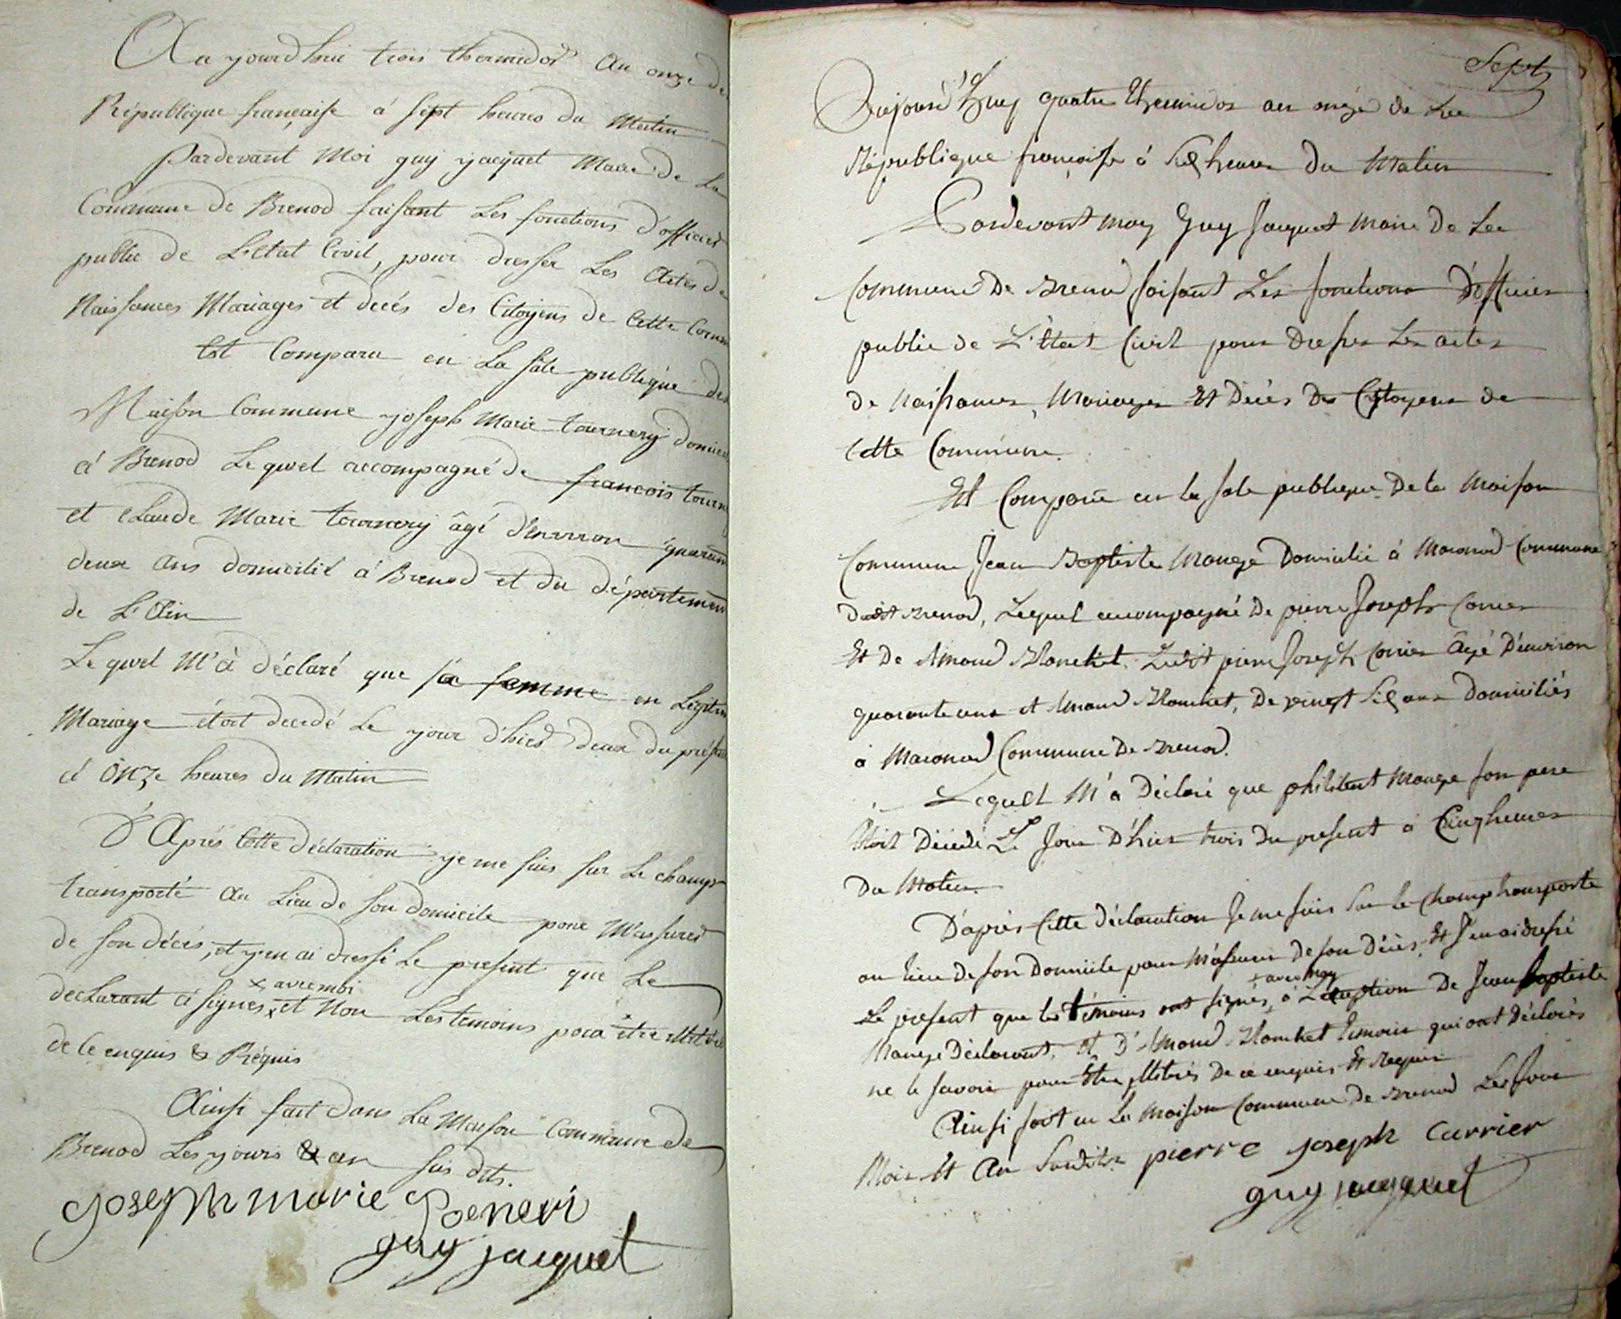 Au yourd'hui trois thermidor an onze de
République française à sept heures du Matin
Pardevant Moi guy yacquet Maire de La
Commune de Brenod faisant Les fonctions d'officier
public de L'Etat Civil, pour dresser Les Actes de
Naissances Mariages et decés des Citoyens de Cette Comm
Est Comparu en La sale publique de
Maison Commune yoseph Marie tournery domici
à Brenod Lequel accompagné de francois tourn
et Claude Marie tournery âgé d'environ quarant
deux ans domicilié à Brenod et du département
de L'Ain
Lequel M'à déclaré que sa femme en Légitim
Mariage étoit decedé Le your d'hier deux du préss
à onze heures du Matin
D'Après Cette déclaration yë me suis sur Le champ
transporté au Lieu de son domicile pour M'assurer
de son décés, et y'en ai dressé Le present que Le
x avec moi
declarant à signés x et Non Les temoins pour être illitérés
de Ce enquis & Réquis
Ainsi fait dans La Maison Commune de
Brenod Les yours & an sus dits.
Joseph marie
guy jacquet
Sept
Aujourd'huy quatre Thermidor an onze de La
République françoise à Six heures du Matin
Pardevant moy Guy Jacquet Maire De La
Commune De Brenod faisant Les fonctions D'officier
public de L'état Civil pour Dresser Les actes
de Naissances, Mariages Et Décès Des Citoyens de
Cette Commune.
Est Comparu en la sale publique De la Maison
Commune Jean Baptiste Monge Domicilié à Macconod Commune
dudit Brenod, Lequel accompagné De pierre Joseph Carrier
Et De Amand Blanchet. Ledit pierre Joseph Carrier Âgé D'environ
quarante ans et Amand Blanchet, De vingt Six ans Domiciliés
à Macconod Commune De Brenod.
Lequel M'à Déclaré que philibert Monge son pere
Etoit Décédé Le Jour D'hier trois Du present à Cinq heures
Du Matin.
D'après Cette Déclaration Je me suis Sur Le Champ transporté
au Lieu De son Domicile pour M'assurer De son Décès, Et J'en ai dressé
avec moy
Le présent que les témoins ont signés, à L'exception De Jean baptiste
Monge Déclarant, et D'Amand Blanchet temoin qui ont Déclarés
ne le savoir pour Etre illitérés De ce enquis Et Requis
Ainsi fait en La Maison Commune De Brenod Les Jour
Mois Et An Susdits. pierre joseph Carrier
guy jacquet